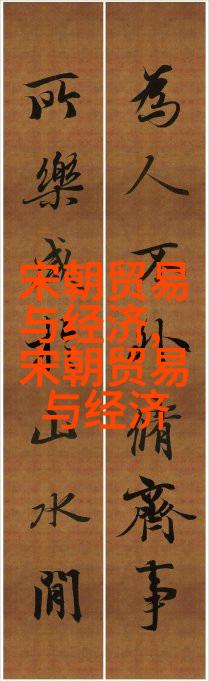 為人不外脩齊事
所樂山水間
宋朝贸易
与经济,
宋朝贸易
与经济